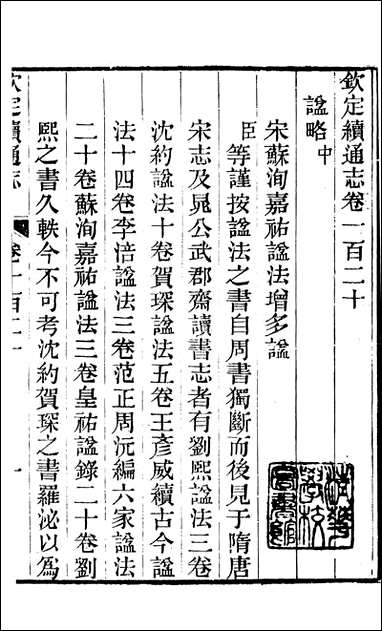 欽定續通志卷一百二十
諡略中
宋蘇洵嘉祐諡法增多諡
臣等謹按諡法之書自周書獨斷而後見于隋唐
宋志及晁公武郡齋讀書志者有劉熙諡法三卷
沈約諡法十卷賀琛諡法五卷王彥威續古今諡
法十四卷李涪諡法三卷范正周沆編六家諡法
二十卷蘇洵嘉祐諡法三卷皇祐諡錄二十卷劉
熙之書久軼今不可考沈約賀琛之書羅泌以為
欽定續通志
卷一百二十
一